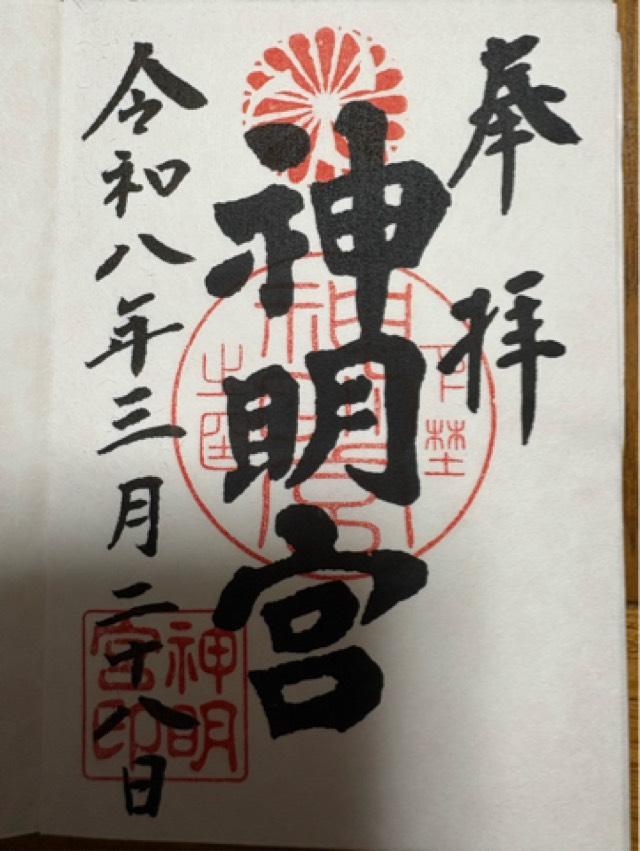 奉拝
神明宮
令和八年三月二十八日
神明
宮印